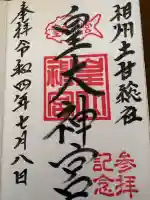 相州土甘総社
皇大神宮
参拝
記念
奉拝 令和四年七月八日